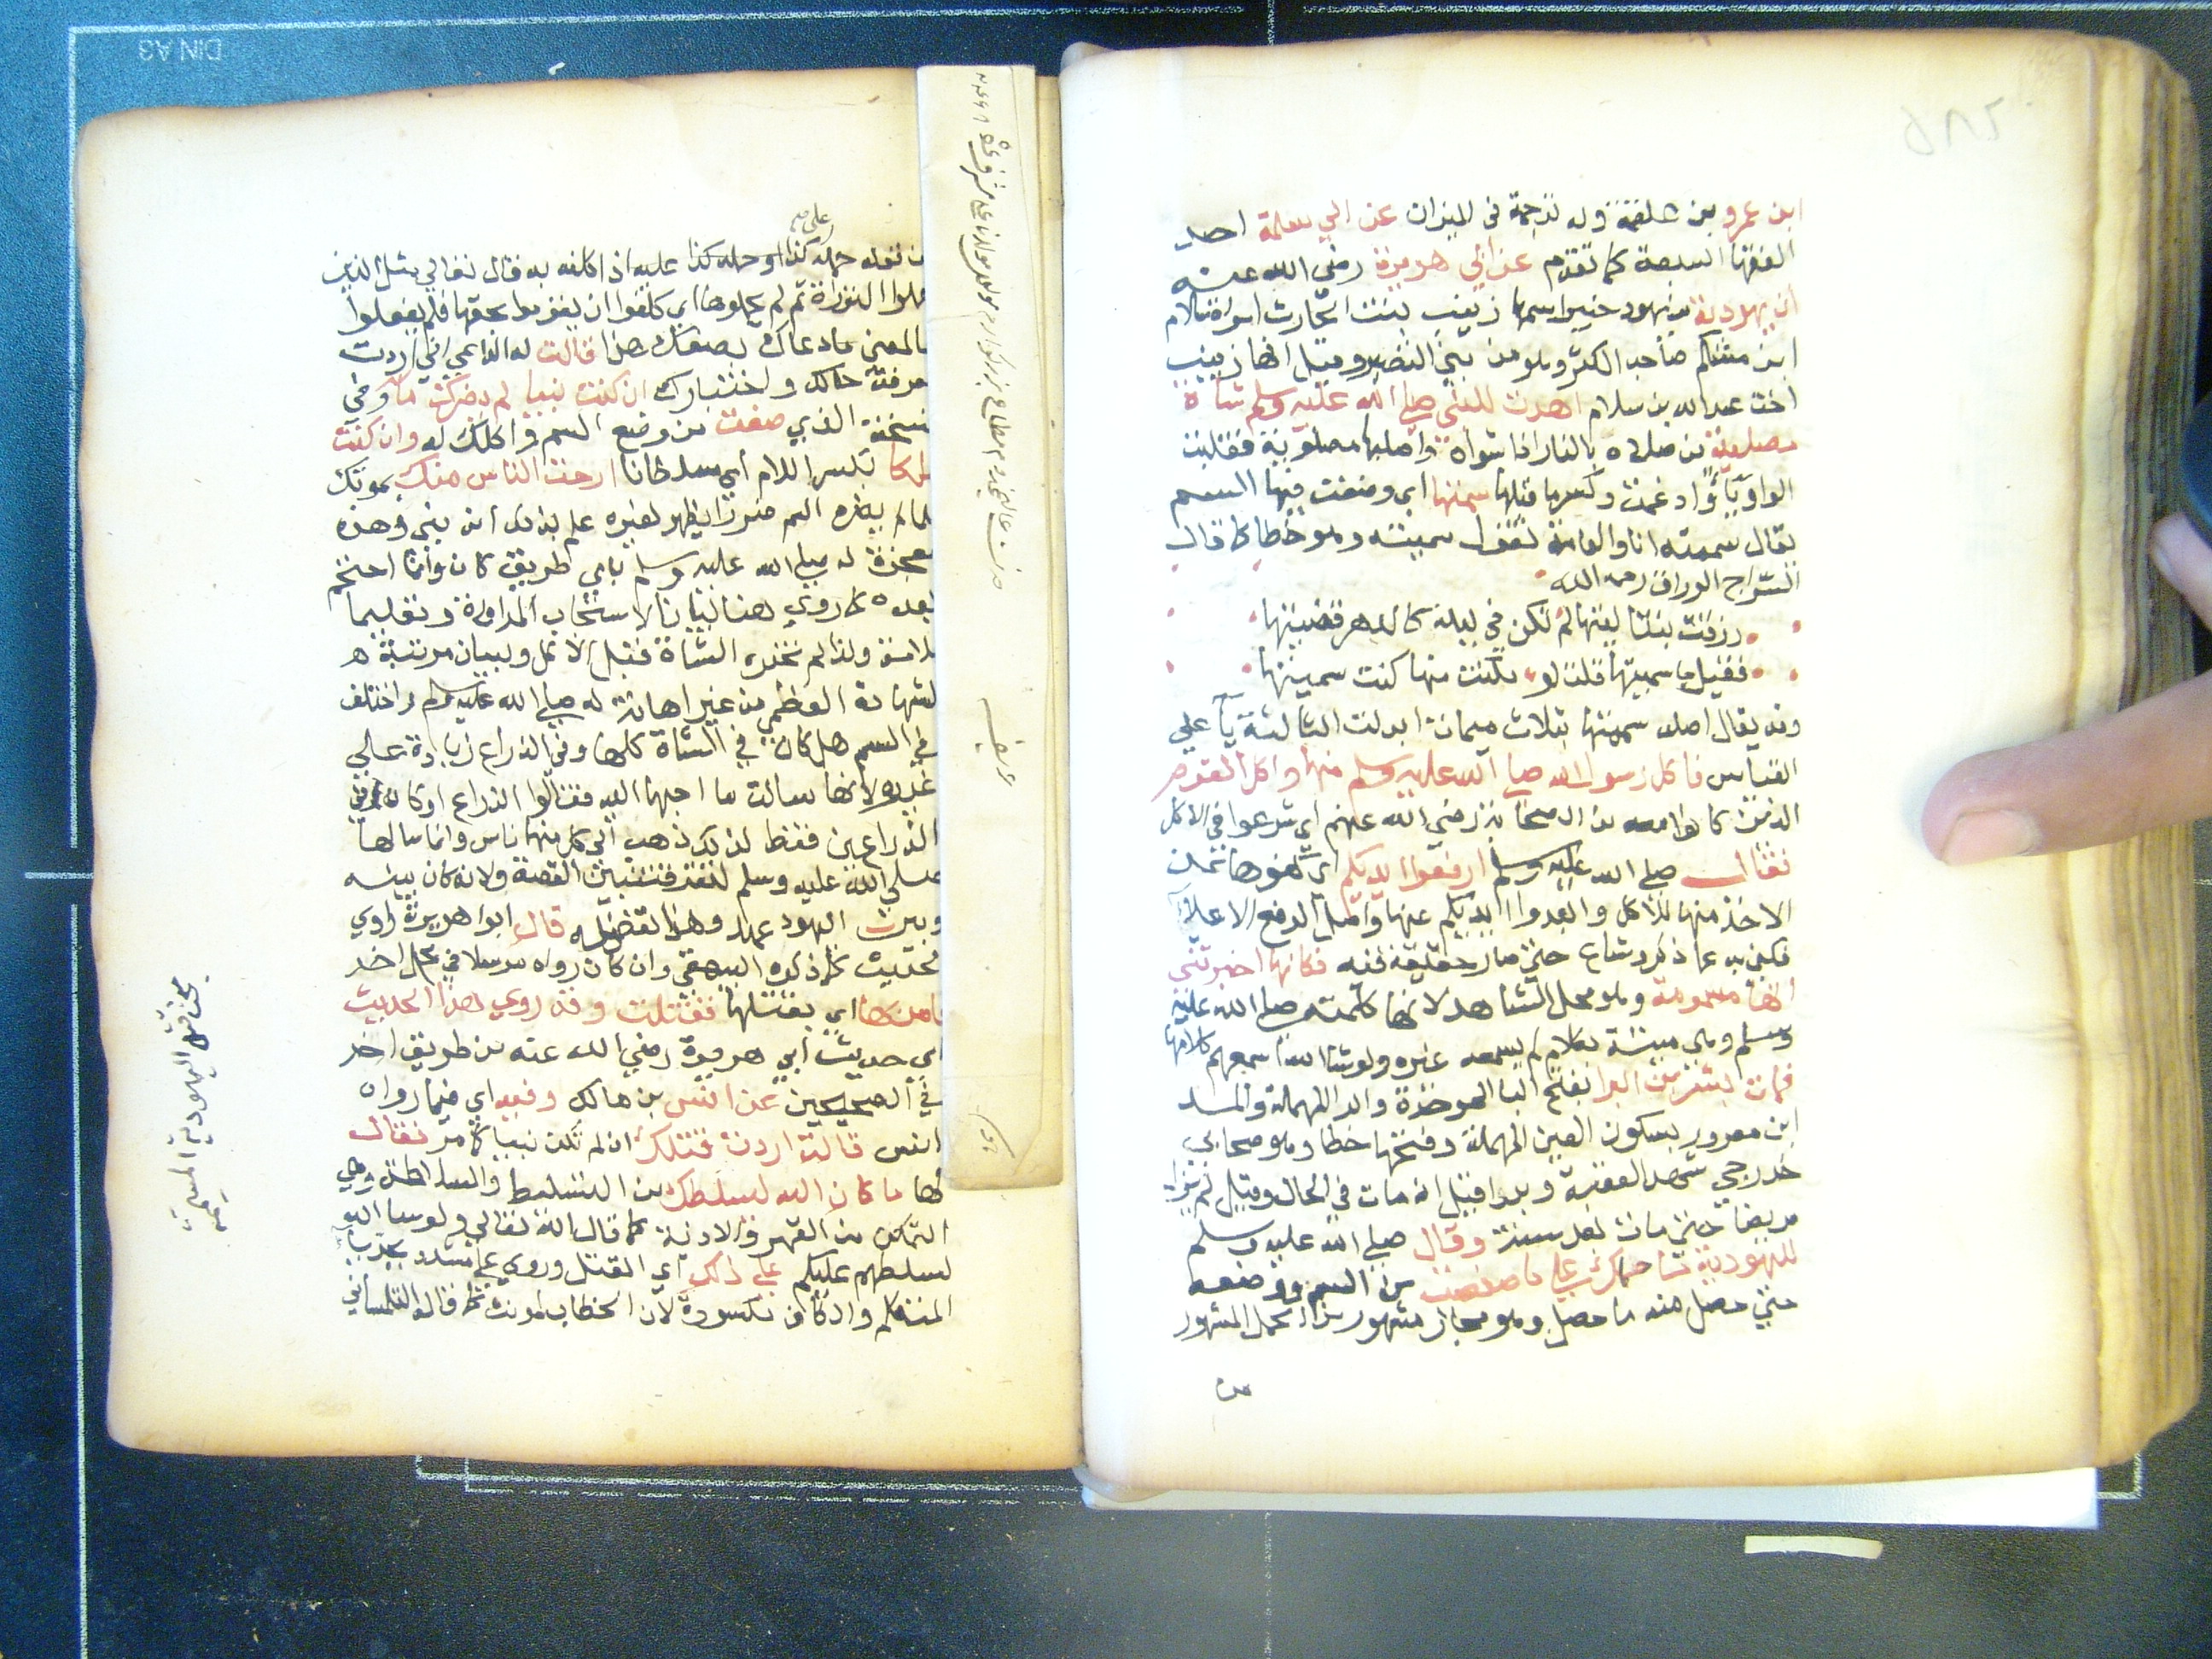 ابن عمرو بن علقمة وله ترجمة في الميزان عن ابي سلمة احد
الفقها السبعة كما تقدم عن ابي هريرة رضى الله عنه
ان يهودية من يهود خيبر اسمها زينب بنت الحارث امراة سلام
ابن مشكم صاحب الكنز وهو من بني النضير وقيل انها زينب
اخت عبد الله بن سلام اهدت للنبي صلي الله عليه وسلم شاة
مصلية من صلاه بالنار اذا شواه واصلها مصلوية فقلبت
الواو يآ وادغمت وكسر ما قبلها سمتها اي وضعت فيها السم
يقال سممته انا والعامة تقول سميته وهو خطا كما قال
السراج الوراق رحمه الله
رزقت بنتا ليتها لم تكن في ليلة كالدهر قضيتها
فقيل ما سميتها قلت لو مكنت منها كنت سميتها
وقد يقال اصله سممتها بثلاث ميمات ابدلت الثالثة يآ علي
القياس فاكل رسول الله صلي الله عليه وسلم منها واكل القوم
الذين كانوا معه من الصحابة رضي الله عنهم اي شرعوا في الاكل
فقال صلي الله عليه وسلم ارفعوا ايديكم اي كفوها عن
الاخذ منها للاكل وابعدوا ايديكم عنها واصل الرفع الاعلاء
فكني به عما ذكر وشاع حتي صار حقيقة فيه فكانها اخبرتني
انها مسمومة وهو محل الشاهد لانها كلمته صلي الله عليه
وسلم وهي ميتة بكلام لم يسمعه غيره ولو شا الله اسمعهم كلامها
فمات بشر بن البرا بفتح البا الموحدة والرا المهملة والمد
ابن معرور بسكون العين المهملة وفتحها خطا وهو صحابي
خزرجي شهد العقبة وبدرا قيل انه مات في الحال وقيل لم يزل
مريضا حتي مات بعد سنة وقال صلي الله عليه وسلم
لليهودية ما حملك علي ما صنعت من السم ووضعه
حتي حصل منه ما حصل وهو مجاز مشهور من الحمل المشهور
من
علي صح
من نقله حمله كذا او حمله كذا عليه اذا كلفه به قال تعالي مثل الذين
حملوا التوراة ثم لم يحملوها اي كلفوا ان يقوموا بحقها فلم يفعلوا
فالمعني ما دعاك لصنعك هذا قالت له اني اردت
معرفة حالك واختبارك ان كنت نبيا لم يضرك ما وفي
نسخة الذي صنعت من وضع السم واكلك له وان كنت
ملكا بكسر اللام اي سلطانا ارحت الناس منك بموتك
فلما لم يضره السم ضررا يظهر لغيره علم بذلك انه نبي وهذه
معجزة له صلي الله عليه وسلم باي طريق كان وانما احتجم
بعده كما روي هنا لبيان الاستحباب المداواة وتعليما
لامته ولذا لم تخبره الشاة قبل الاكل ولبيان مرتبة
الشهادة العظمي من غير اهانة له صلي الله عليه وسلم واختلف
في السم هل كان في الشاة كلها وفي الذراع زيادة علي
غيره لانها سالت ما احبها اليه فقالوا الذراع او كان في
الذراعين فقط لذلك ذهب الي كل منها ناس وانما سالها
صلي الله عليه وسلم لتقر فتتبين القصة ولانه كان بينه
وبين اليهود عهد وهذا نقض له قال ابو هريرة راوي
الحديث كما ذكره البيهقي وان كان رواه مرسلا في محل اخر
فامر بها اي بقتلها فقتلت وقد روي هذا الحديث
اي حديث ابي هريرة رضي الله عنه من طريق اخر
في الصحيحين عن انس بن مالك وفيه اي فيما رواه
انس قالت اردت قتلك ان لم تكن نبيا كما مر فقال
لها ما كان الله ليسلطك من التسلط والسلاطة وهي
التمكن من القهر والاذية كما قال الله تعالي ولو شا الله
لسلطهم عليكم علي ذلك اي القتل وروي علي مشدد بجر يا
المتكلم والكاف مكسورة لان الخطاب لمونث كما قاله التلمساني
بحث قتل اليهودية المسممة